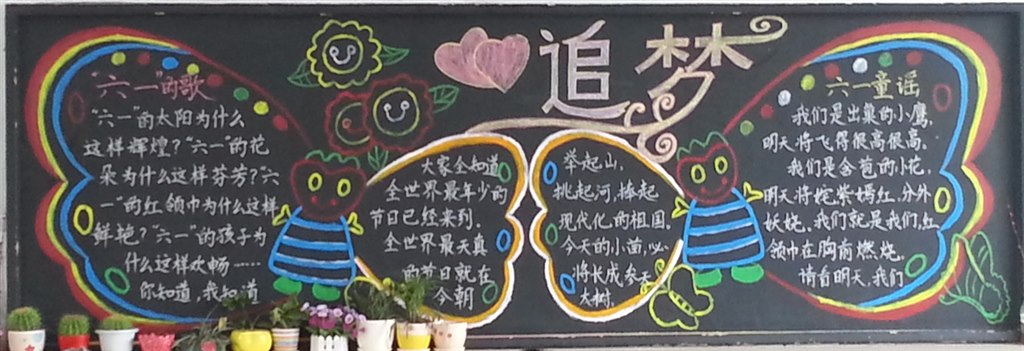 追梦
"六一"的歌
"六一"的太阳为什么
这样辉煌?"六一"的花
朵为什么这样芬芳?"六
一"的红领巾为什么这样
鲜艳?"六一"的孩子为
什么这样欢畅……
你知道,我知道
大家全知道
全世界最年少的
节日已经来到。
全世界最天真
的节日就在
今朝
举起山,
挑起河,捧起
现代化的祖国。
今天的小苗,必
将长成参天
大树。
六一童谣
我们是出巢的小鹰,
明天将飞得很高很高。
我们是含苞的小花,
明天将姹紫嫣红,分外
妖娆。我们就是我们,红
领巾在胸前燃烧。
请看明天,我们